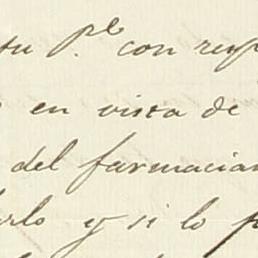 su p.º con resp
en vista de
del farmacian
rlo y si lo p